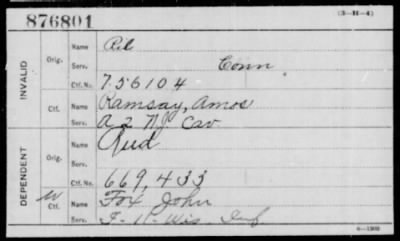 876801
(3-H-4)
INVALID
Orig.
Name Ril
Serv. Conn
Ctf. No. 756104
Ctf.
Name Ramsay, Amos
Serv. A 2 NJ Cav
DEPENDENT
Orig.
Name Rud
Serv.
Ctf. No. 669,433
W Ctf.
Name Fox John
Serv. F. 11. Wis Inf
6-1903